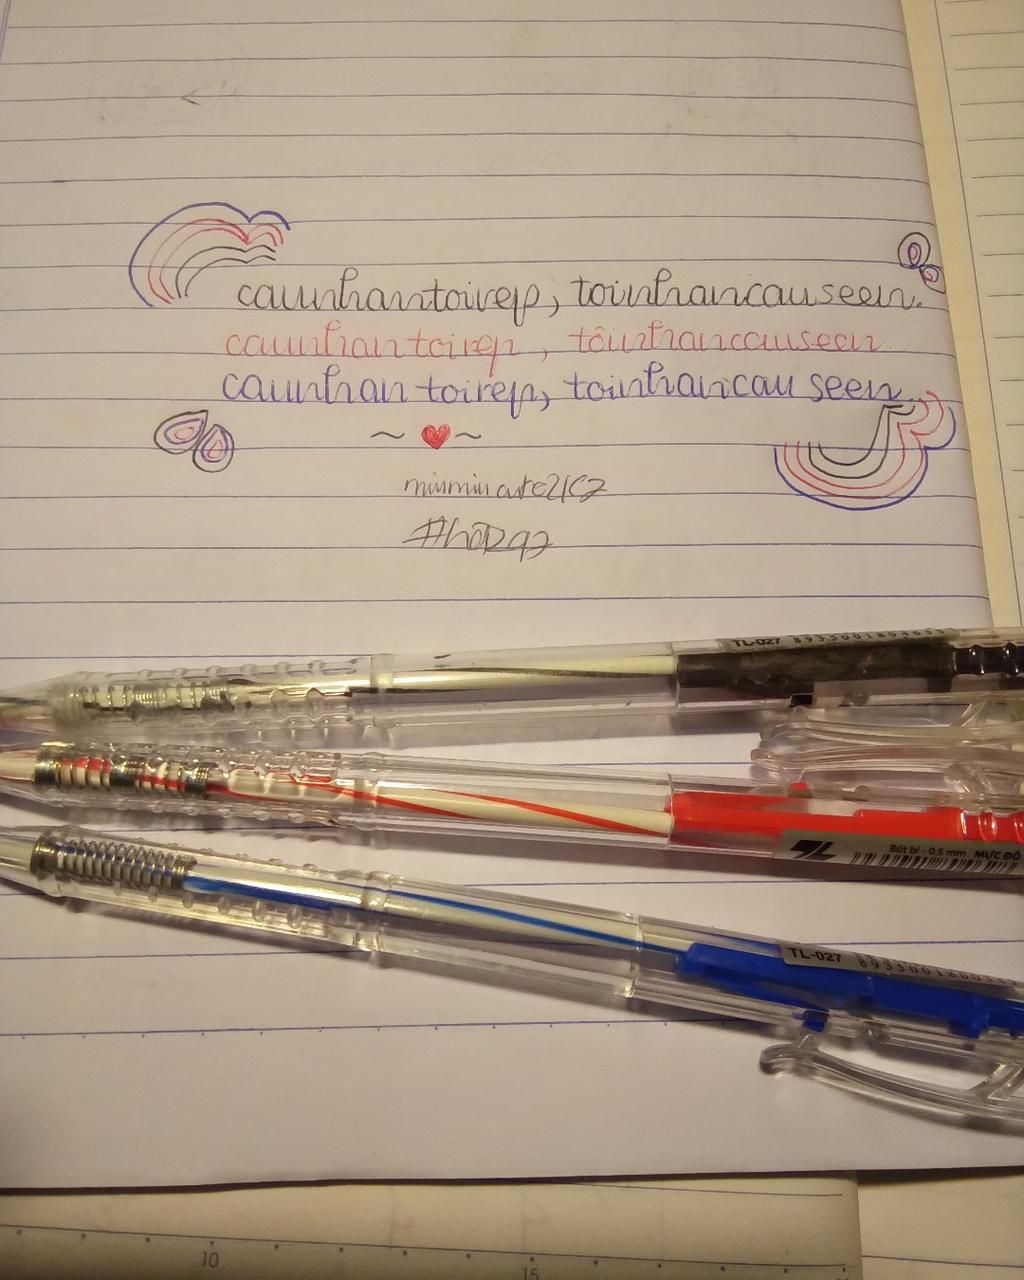 caunhantoirep, toinhancauseen.
caunhantoirep, toinhancauseen.
caunhan toirep, toinhancau seen..
~ ❤ ~
minmin cute2102
TL-027
Bút bi - 0.5 mm MỰC ĐỎ
TL-027
10
15